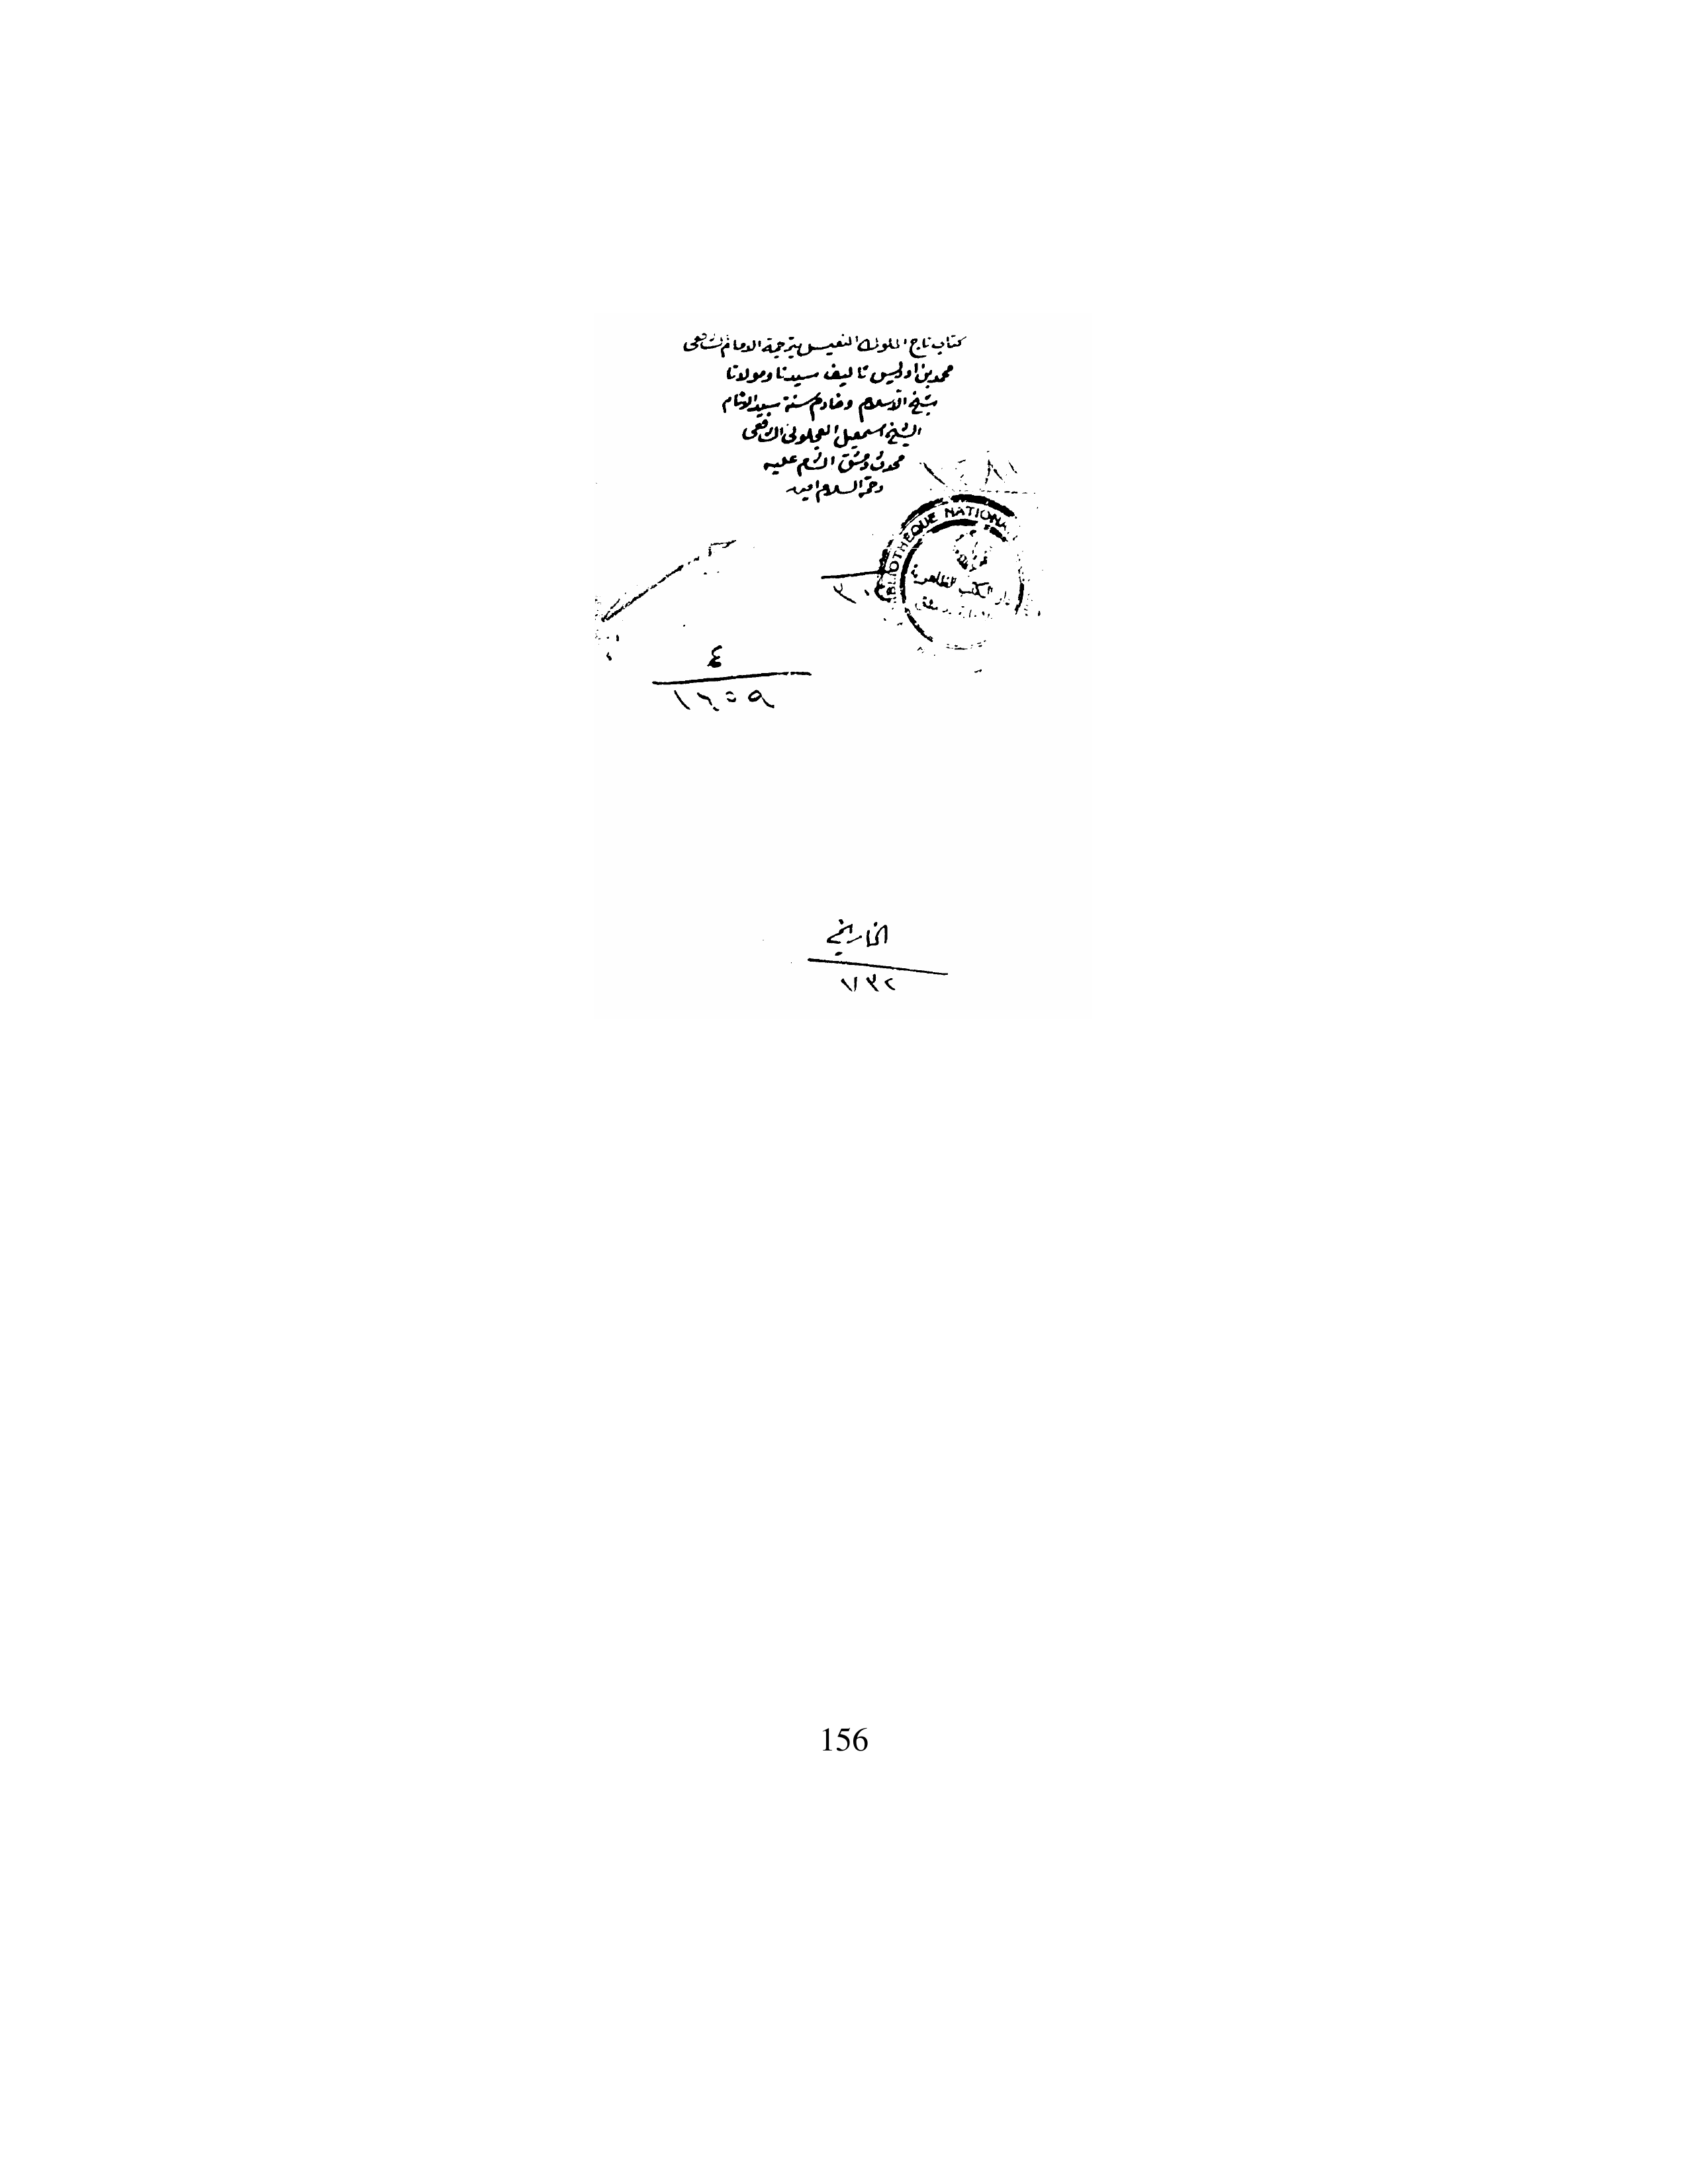 كتاب تاج الملوك النفيس بترجمة الامام الشافعى
محمد بن ادريس تاليف سيدنا ومولانا
شيخ الاسلام وخادم سنة سيد الانام
الشيخ اسمعيل العجلونى الشافعى
محدث دمشق الشام عليه
رحمة السلام امين
BLIOTHEQUE NATIONA
دار الكتب الظاهرية
٤
١٦٠٥٩
التاريخ
٧٣٢
156